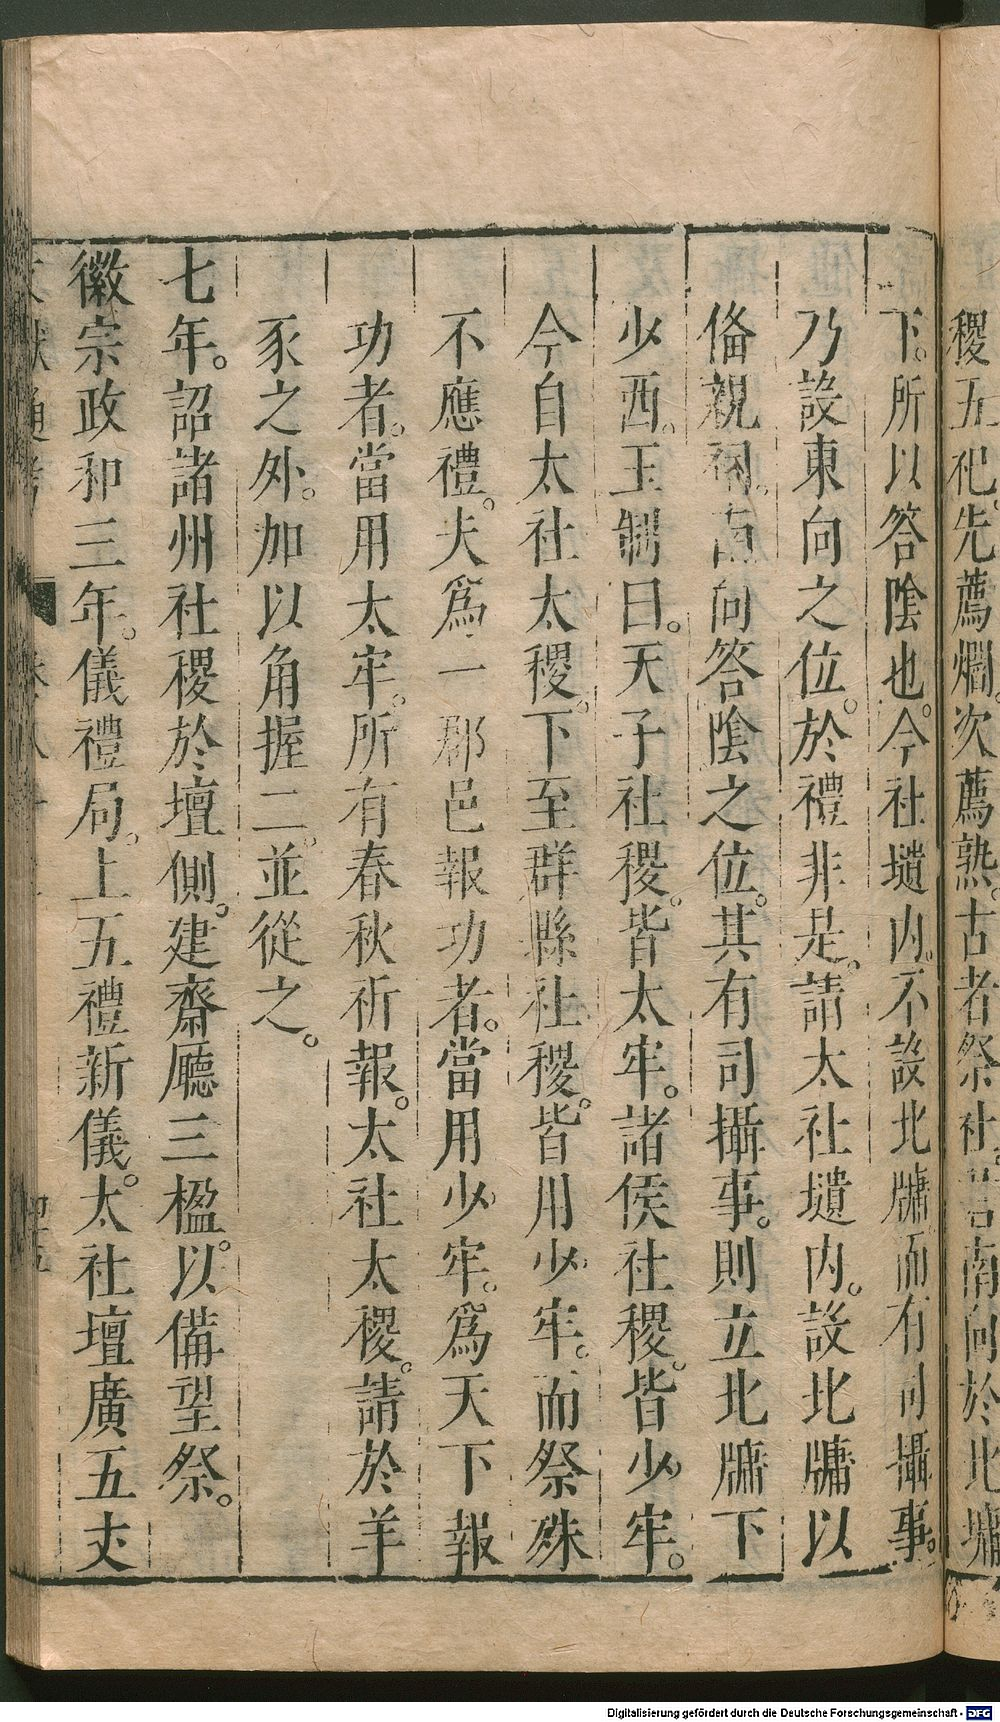 稷五祀先薦爓次薦熟。古者祭社。君南向於北墉
下。所以答陰也。今社壝内。不設北牗而有司攝事。
乃設東向之位。於禮非是。請太社壝内。設北牗以
俻親祠。南向答陰之位。其有司攝事。則立北牗下
少西。王制曰。天子社稷。皆太牢。諸侯社稷。皆少牢。
今自太社太稷。下至群縣社稷。皆用少牢。而祭殊
不應禮。夫爲一郡邑報功者。當用少牢。爲天下報
功者。當用太牢。所有春秋祈報。太社太稷。請於羊
豕之外。加以角握二。並從之。
七年。詔諸州社稷於壇側。建齋廳三楹。以備望祭。
徽宗政和三年。儀禮局。上五禮新儀。太社壇廣五丈
文獻通考 卷八十二 四五
Digitalisierung gefördert durch die Deutsche Forschungsgemeinschaft - DFG